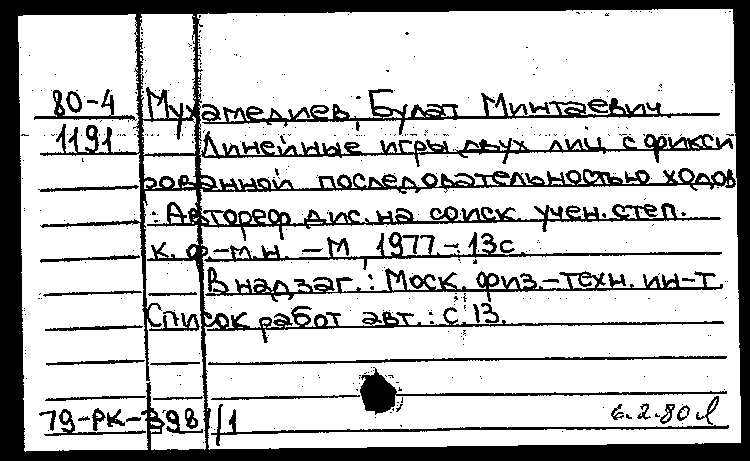 80-4 Мухамедиев, Булат Минтаевич
1191 Линейные игры двух лиц с фикси
рованной последовательностью ходов
: Автореф дис. на соиск учен. степ.
к. ф.-м.н. – М, 1977.– 13с.
В надзаг.: Моск. физ.-техн. ин-т.
Список работ авт.: с 13.
79-РК-398 /1 6.2.80